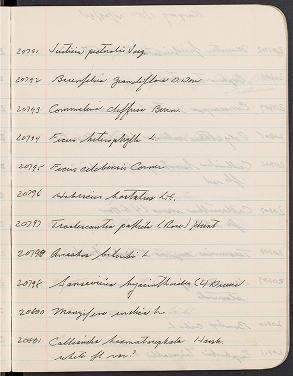 20791 Justicia pectoralis Jacq
20792 Brunfelsia grandiflora D. Don
20793 Commelina diffusa Burm.
20794 Ficus heterophylla L.
20795 Ficus celebensis Corner
20796 Hibiscus hastatus L.f.
20797 Tradescantia pallida (Rose) Hunt
20798 Averrhoa bilimbi L
20798 Sansevieria hyacinthoides (L) Druce
20800 Mangifera indica L
20801 Calliandra haematocephala Hassk.
white fl var?